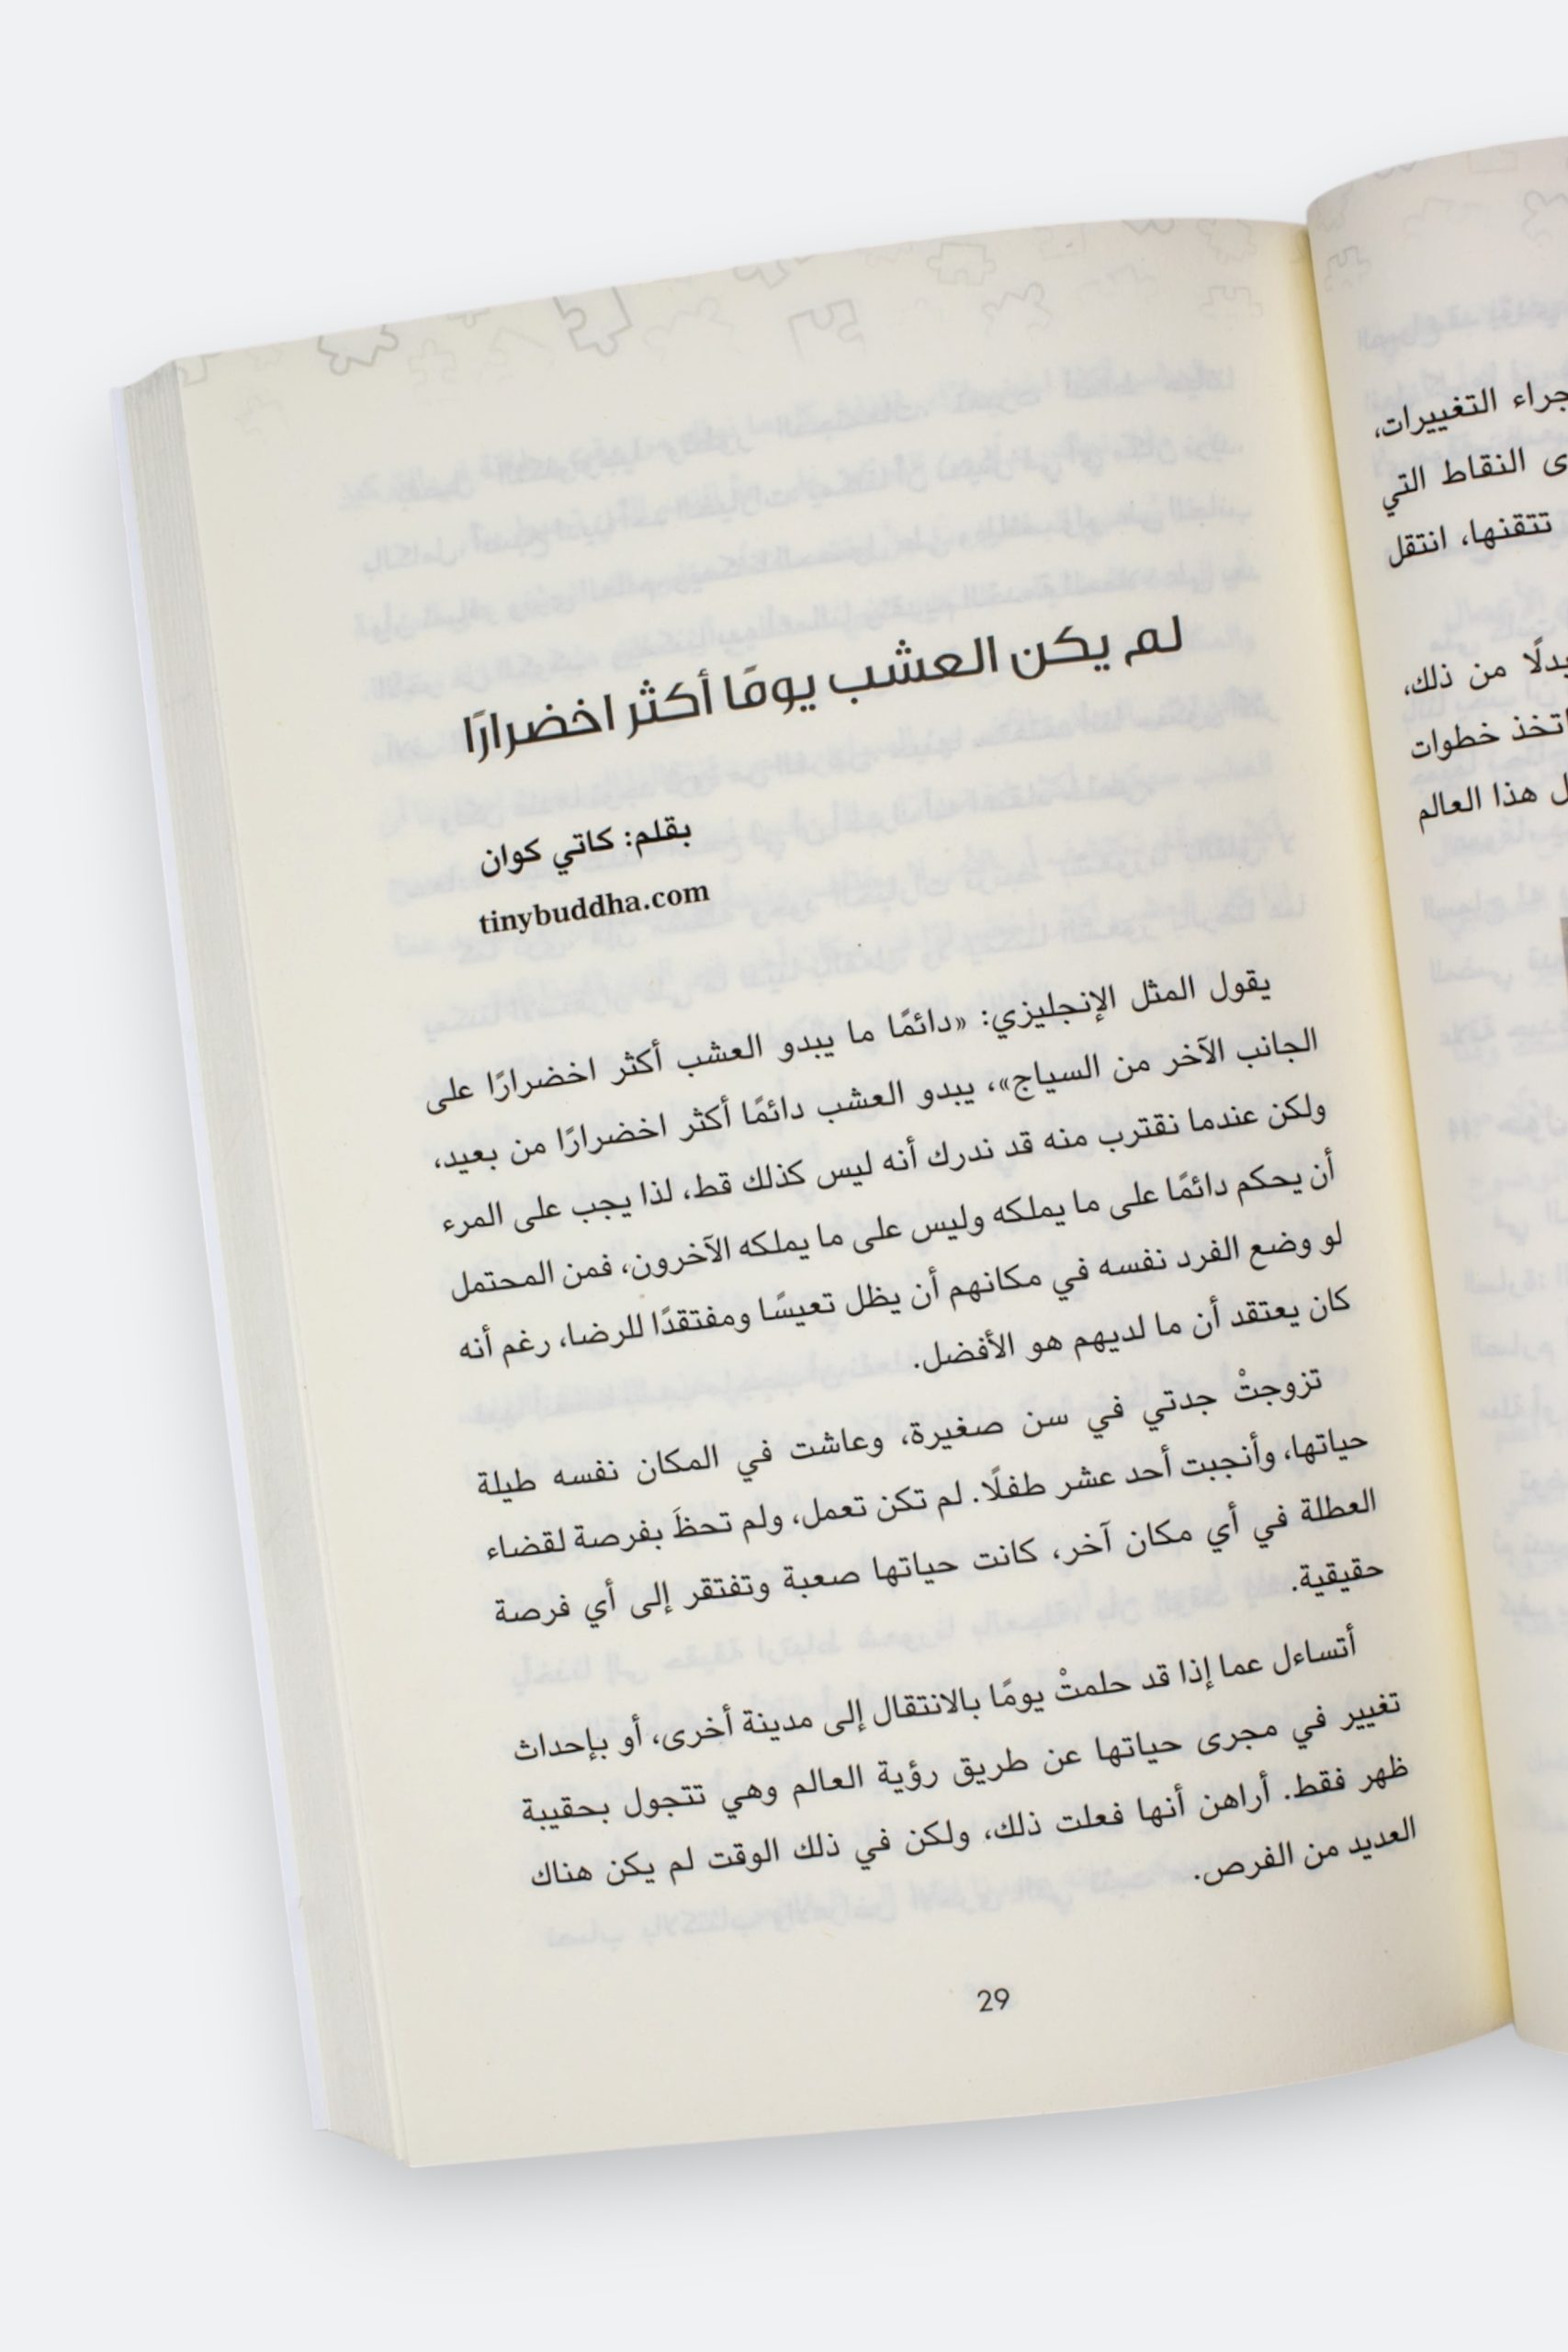 جراء التغييرات،
النقاط التي
تتقنها، انتقل
بدلًا من ذلك،
اتخذ خطوات
هذا العالم
لم يكن العشب يومًا أكثر اخضرارًا
بقلم: كاتي كوان
tinybuddha.com
يقول المثل الإنجليزي: «دائمًا ما يبدو العشب أكثر اخضرارًا على
الجانب الآخر من السياج»، يبدو العشب دائمًا أكثر اخضرارًا من بعيد،
ولكن عندما نقترب منه قد ندرك أنه ليس كذلك قط، لذا يجب على المرء
أن يحكم دائمًا على ما يملكه وليس على ما يملكه الآخرون، فمن المحتمل
لو وضع الفرد نفسه في مكانهم أن يظل تعيسًا ومفتقدًا للرضا، رغم أنه
كان يعتقد أن ما لديهم هو الأفضل.
تزوجتْ جدتي في سن صغيرة، وعاشت في المكان نفسه طيلة
حياتها، وأنجبت أحد عشر طفلًا. لم تكن تعمل، ولم تحظَ بفرصة لقضاء
العطلة في أي مكان آخر، كانت حياتها صعبة وتفتقر إلى أي فرصة
حقيقية.
أتساءل عما إذا قد حلمتْ يومًا بالانتقال إلى مدينة أخرى، أو بإحداث
تغيير في مجرى حياتها عن طريق رؤية العالم وهي تتجول بحقيبة
ظهر فقط. أراهن أنها فعلت ذلك، ولكن في ذلك الوقت لم يكن هناك
العديد من الفرص.
29